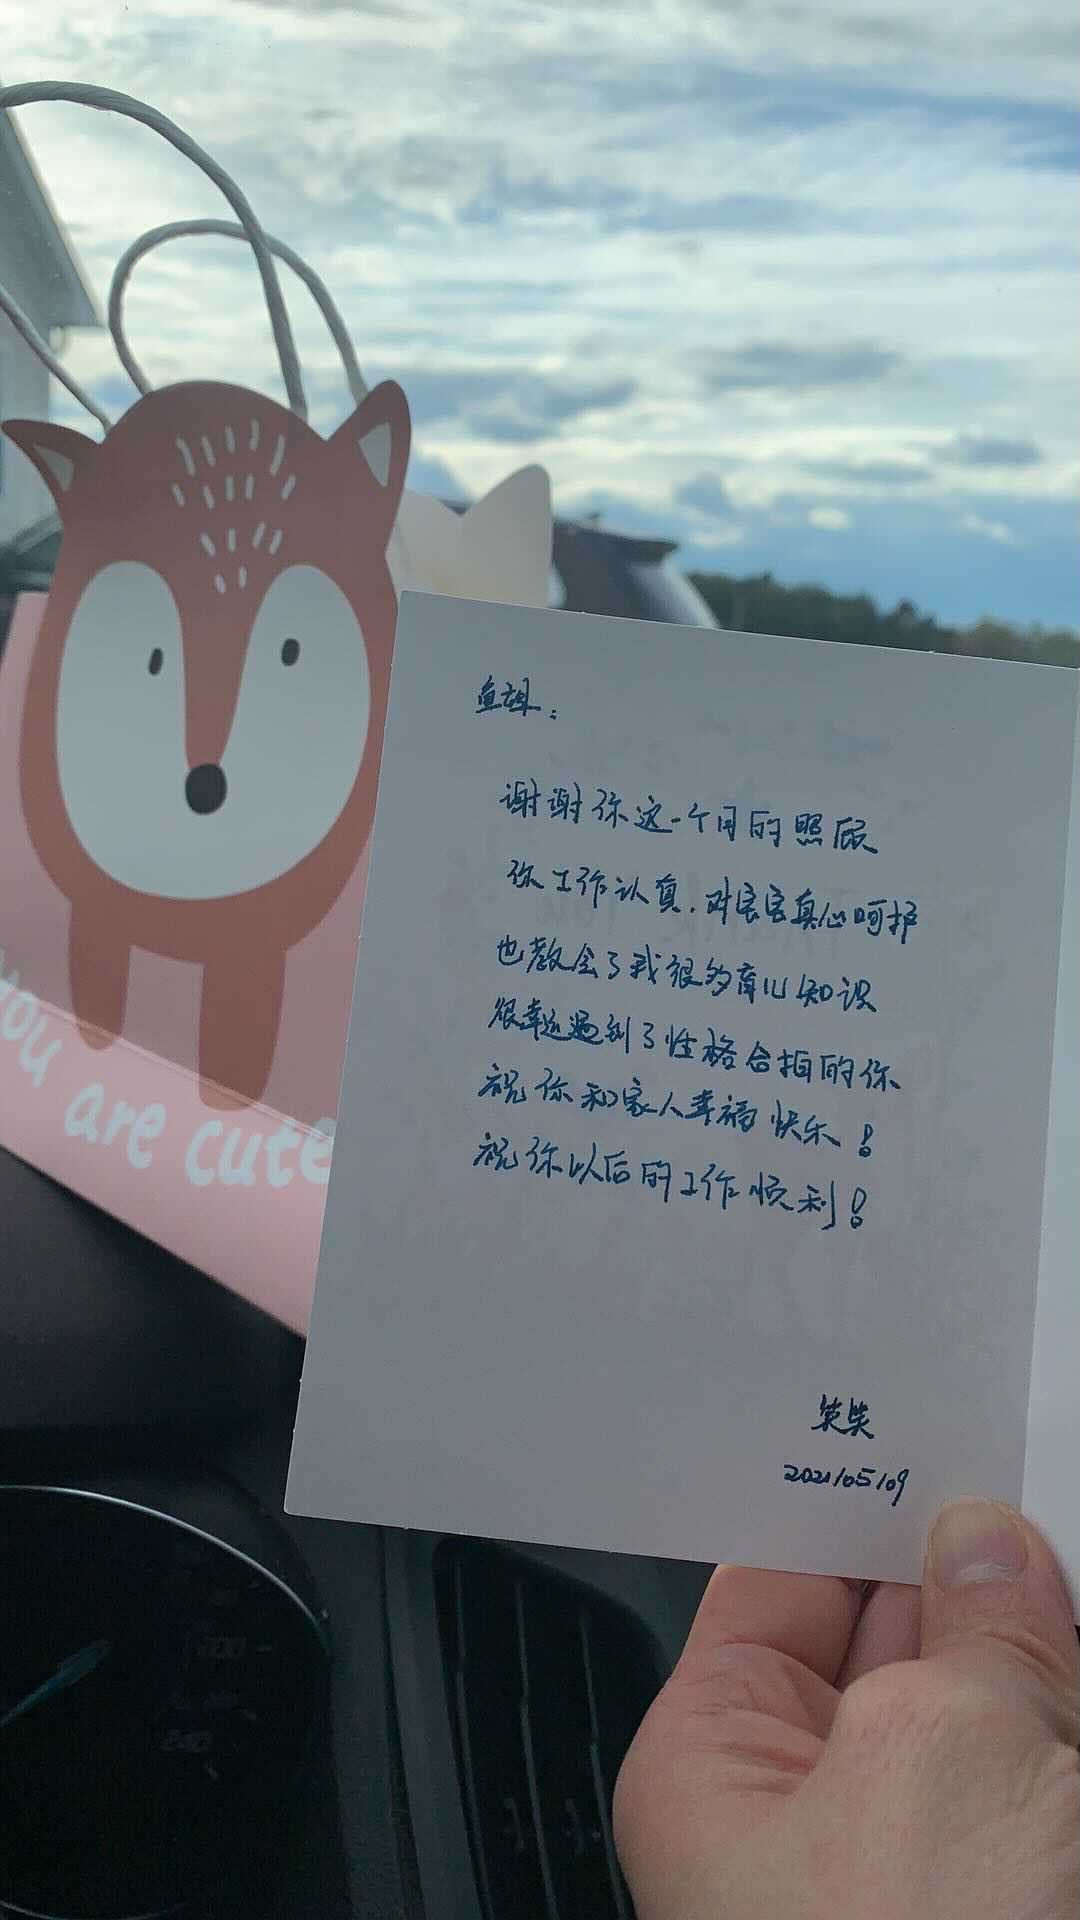 鱼姐：
谢谢你这一个月的照顾
你工作认真，对宝宝真心呵护
也教会了我很多育儿知识
很幸运遇到了性格合拍的你
祝你和家人幸福快乐！
祝你以后的工作顺利！
笑笑
2021/05/09
you are cute
200